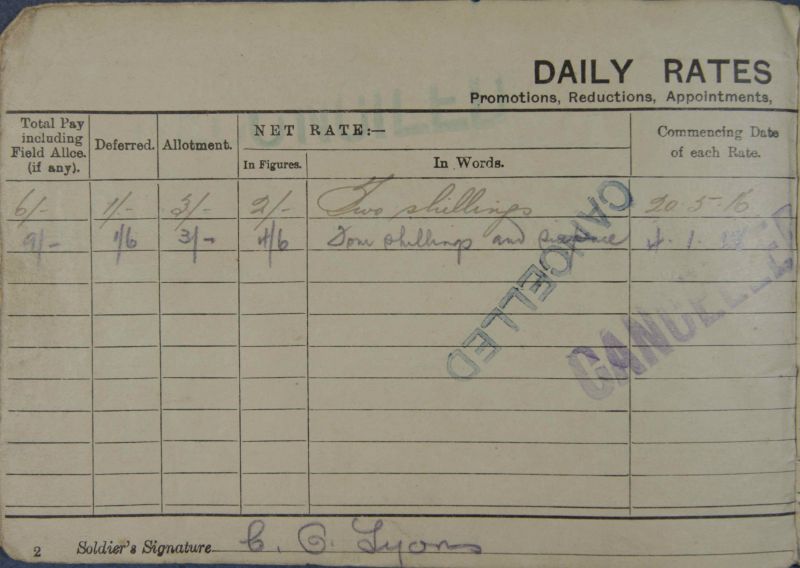 DAILY RATES
Promotions, Reductions, Appointments,
Total Pay including Field Allce. (if any).
Deferred.
Allotment.
NET RATE:—
In Figures.
In Words.
Commencing Date of each Rate.
6/- 1/- 3/- 2/- Two shillings 20.5.16
9/- 1/6 3/- 4/6 Four shillings and sixpence 4.1.
CANCELLED
CANCELLED
2 Soldier's Signature C. O. Lyons